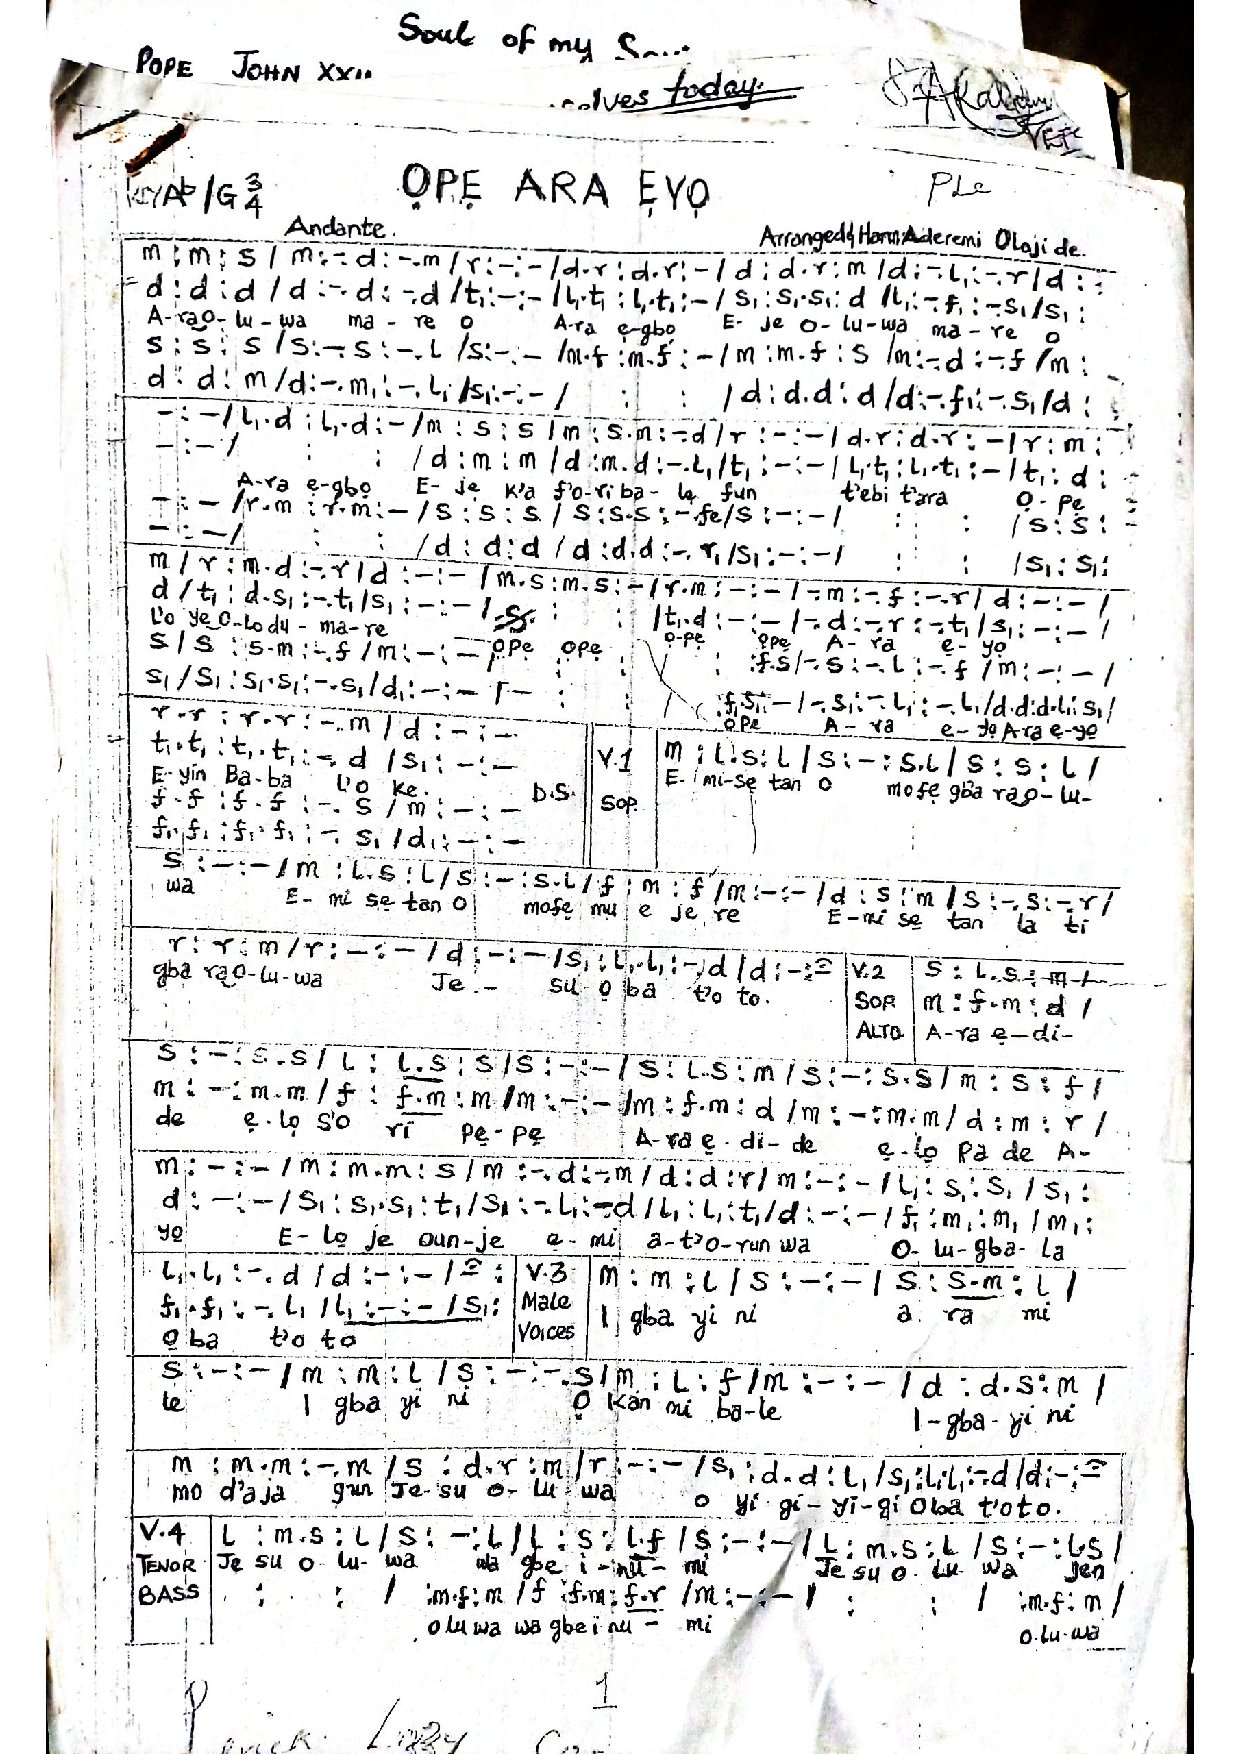 Soul of my
POPE JOHN XXII
today.
ỌPẸ ARA ẸYỌ
KEY Ab/G 3/4
PLe
Andante.
Arranged & Harm: Aderemi Olajide.
m : m : s / m :-. d : -. m / r : - : - / d . r : d . r : - / d : d . r : m / d : -. l₁ : -. r / d :
d : d : d / d :-. d : -. d / t₁ : - : - / l₁. t₁ : l₁. t₁ : - / s₁ : s₁. s₁ : d / l₁ : -. f₁ : -. s₁ / s₁ :
A-ra O-lu-wa ma-re o A-ra ẹ-gbọ E-je O-lu-wa ma-re o
s : s : s / s :-. s : -. l / s : - : - / m . f : m . f : - / m : m . f : s / m : -. d : -. f / m :
d : d : m / d :-. m₁ : -. l₁ / s₁ : - : - / : : / d : d . d : d / d : -. f₁ : -. s₁ / d :
- : - / l₁. d : l₁. d : - / m : s : s / m : s . m : -. d / r : - : - / d . r : d . r : - / r : m :
- : - / : : / d : m : m / d : m . d : -. l₁ / t₁ : - : - / l₁. t₁ : l₁. t₁ : - / t₁ : d :
A-ra ẹ-gbọ E-je k'a f'o-ri ba-lẹ fun t'ebi t'ara Ọ-pẹ
- : - / r . m : r . m : - / s : s : s / s : s . s : -. fe / s : - : - / : : / s : s :
- : - / : : / d : d : d / d : d . d : -. r₁ / s₁ : - : - / : : / s₁ : s₁ :
m / r : m . d : -. r / d : - : - / m . s : m . s : - / r . m : - : - / -. m : -. f : -. r / d : - : - /
d / t₁ : d . s₁ : -. t₁ / s₁ : - : - / : : / t₁. d : - : - / -. d : -. r : -. t₁ / s₁ : - : - /
L'o ye O-lo du-ma-re ọpẹ ọpẹ ọ-pẹ ọpẹ A-ra ẹ-yọ
s / s : s . m : -. f / m : - : - / : : : f . s / -. s : -. l : -. f / m : - : - /
s₁ / s₁ : s₁. s₁ : -. s₁ / d₁ : - : - / - : : : f₁. s₁ : - / -. s₁ : -. l₁ : -. l₁ / d . d : d . l₁ : s₁ /
ọpẹ A-ra ẹ-yọ Ara ẹ-yọ
r . r : r . r : -. m / d : - : -
t₁. t₁ : t₁. t₁ : -. d / s₁ : - : -
E-yin Ba-ba l'o ke. D.S.
f . f : f . f : -. s / m : - : -
f₁. f₁ : f₁. f₁ : -. s₁ / d₁ : - : -
V.1 SOP.
m : l . s : l / s : - : s . l / s : s : l /
E-mi-sẹ tan o mofẹ gba ra O-lu-
s : - : - / m : l . s : l / s : - : s . l / f : m : f / m : - : - / d : s : m / s : -. s : -. r /
wa E-mi sẹ tan o mofẹ mu e je re E-mi sẹ tan la ti
r : r : m / r : - : - / d : - : - / s₁ : l₁. l₁ : -. d / d : - :
gba ra O-lu-wa Je - su Ọ ba t'o to.
V.2 SOP. ALTO.
s : l . s : m /
m : f . m : d /
A-ra ẹ-di-
s : - : s . s / l : l . s : s / s : - : - / s : l . s : m / s : - : s . s / m : s : f /
m : - : m . m / f : f . m : m / m : - : - / m : f . m : d / m : - : m . m / d : m : r /
de ẹ-lọ s'o ri pẹ-pẹ A-ra ẹ-di-de ẹ-lọ pa de A-
m : - : - / m : m . m : s / m : -. d : -. m / d : d : r / m : - : - / l₁ : s₁ : s₁ / s₁ :
d : - : - / s₁ : s₁. s₁ : t₁ / s₁ : -. l₁ : -. d / l₁ : l₁ : t₁ / d : - : - / f₁ : m₁ : m₁ / m₁ :
yọ E-lọ je oun-je ẹ-mi a-t'o-run wa O-lu-gba-la
l₁. l₁ : -. d / d : - : - / - :
f₁. f₁ : -. l₁ / l₁ : - : - / s₁ :
Ọ ba t'o to
V.3 Male Voices
m : m : l / s : - : - / s : s . m : l /
I gba yi ni a ra mi
s : - : - / m : m : l / s : - : -. s / m : l : f / m : - : - / d : d . s : m /
le I gba yi ni Ọ kan mi ba-le I-gba-yi ni
m : m . m : -. m / s : d . r : m / r : - : - / s₁ : d . d : l₁ / s₁ : l₁. l₁ : -. d / d : - :
mo d'aja gun Je-su O-lu-wa o yi gi-yi-gi Oba t'oto.
V.4
L : m . s : l / s : - : l / l : s : l . f / s : - : - / l : m . s : l / s : - : l . s /
TENOR Je su O-lu-wa wa gbe i-nu-mi Je su O-lu-wa jen
BASS : : / : m . f : m / f : f . m : f . r / m : - : - / : : / : m . f : m /
Oluwa wa gbe i nu-mi O-lu-wa
1